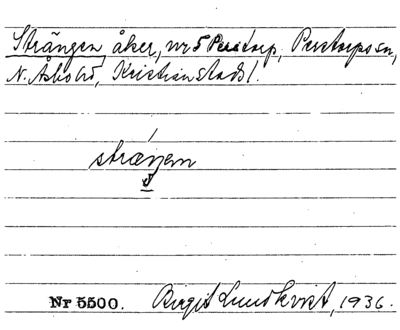 Strängen, åker, nr 5 Perstorp, Perstorps sn,
N. Åsbo hd, Kristianstads l.
stræŋen
Nr 5500. Birgit Lundkvist, 1936.